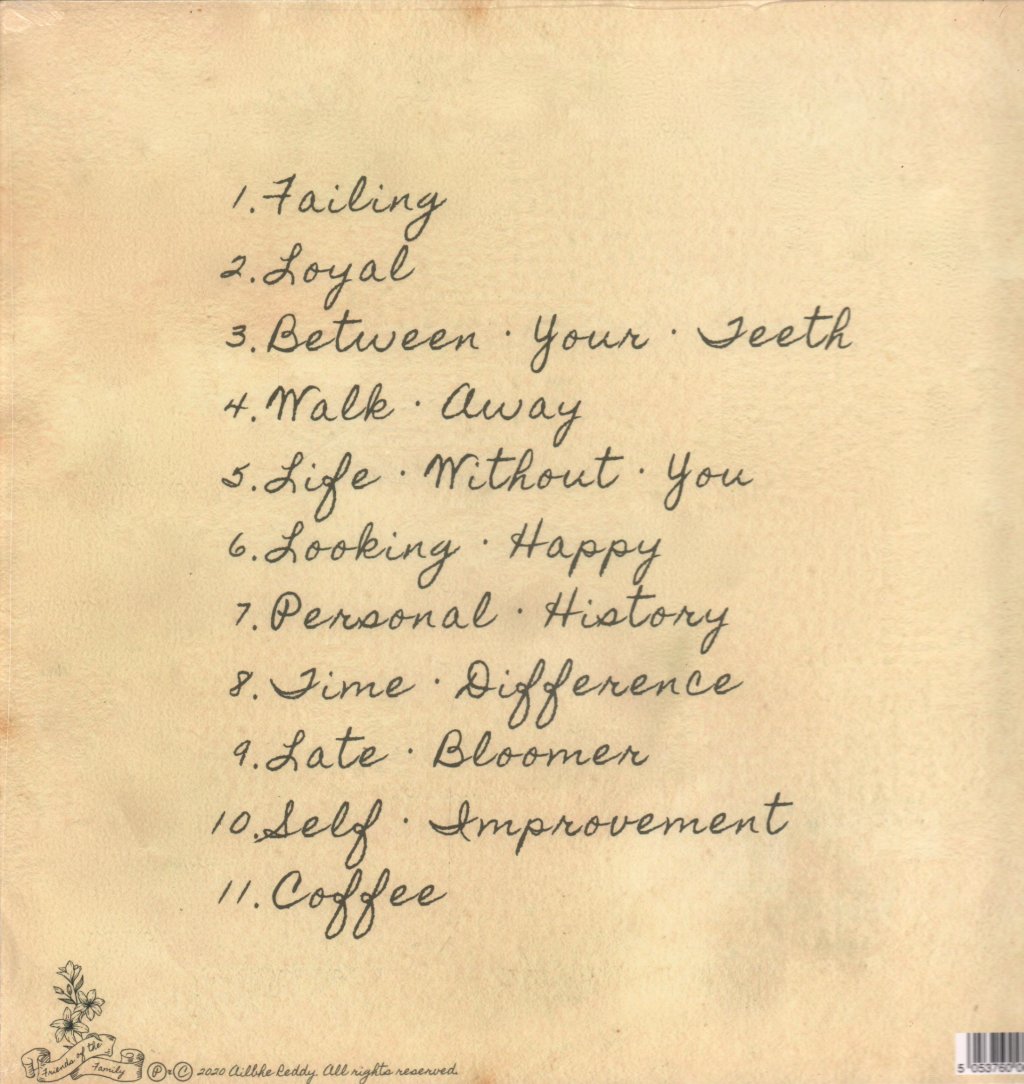 1. Failing
2. Loyal
3. Between · Your · Teeth
4. Walk · Away
5. Life · Without · You
6. Looking · Happy
7. Personal · History
8. Time · Difference
9. Late · Bloomer
10. Self · Improvement
11. Coffee
Friends of the
Family
Ⓟ+© 2020 Ailbhe Reddy. All rights reserved.
5 053760 0